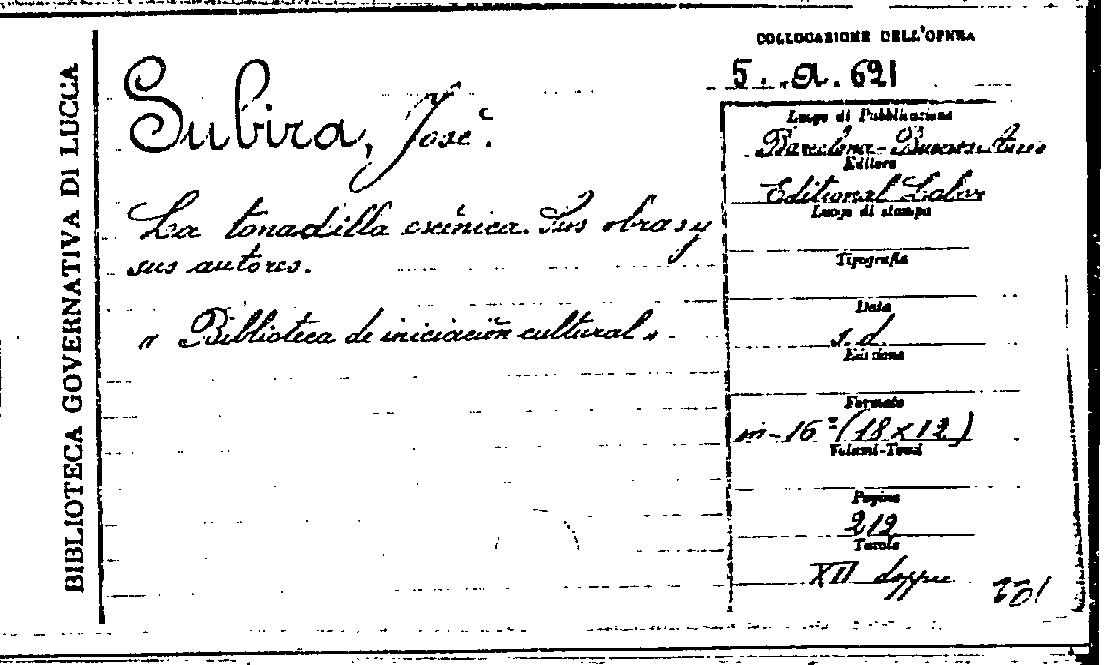 BIBLIOTECA GOVERNATIVA DI LUCCA
Subira, José.
La tonadilla escénica. Sus obras y
sus autores.
" Biblioteca de iniciación cultural "
COLLOCAZIONE DELL'OPERA
5. a. 621
Luogo di Pubblicazione
Barcelona - Buenos Aires
Editore
Editorial Labor
Luogo di stampa
Tipografia
Data
s. d.
Edizione
Formato
in-16° (18 x 12)
Volumi-Tomi
Pagine
212
Tavole
XII doppie